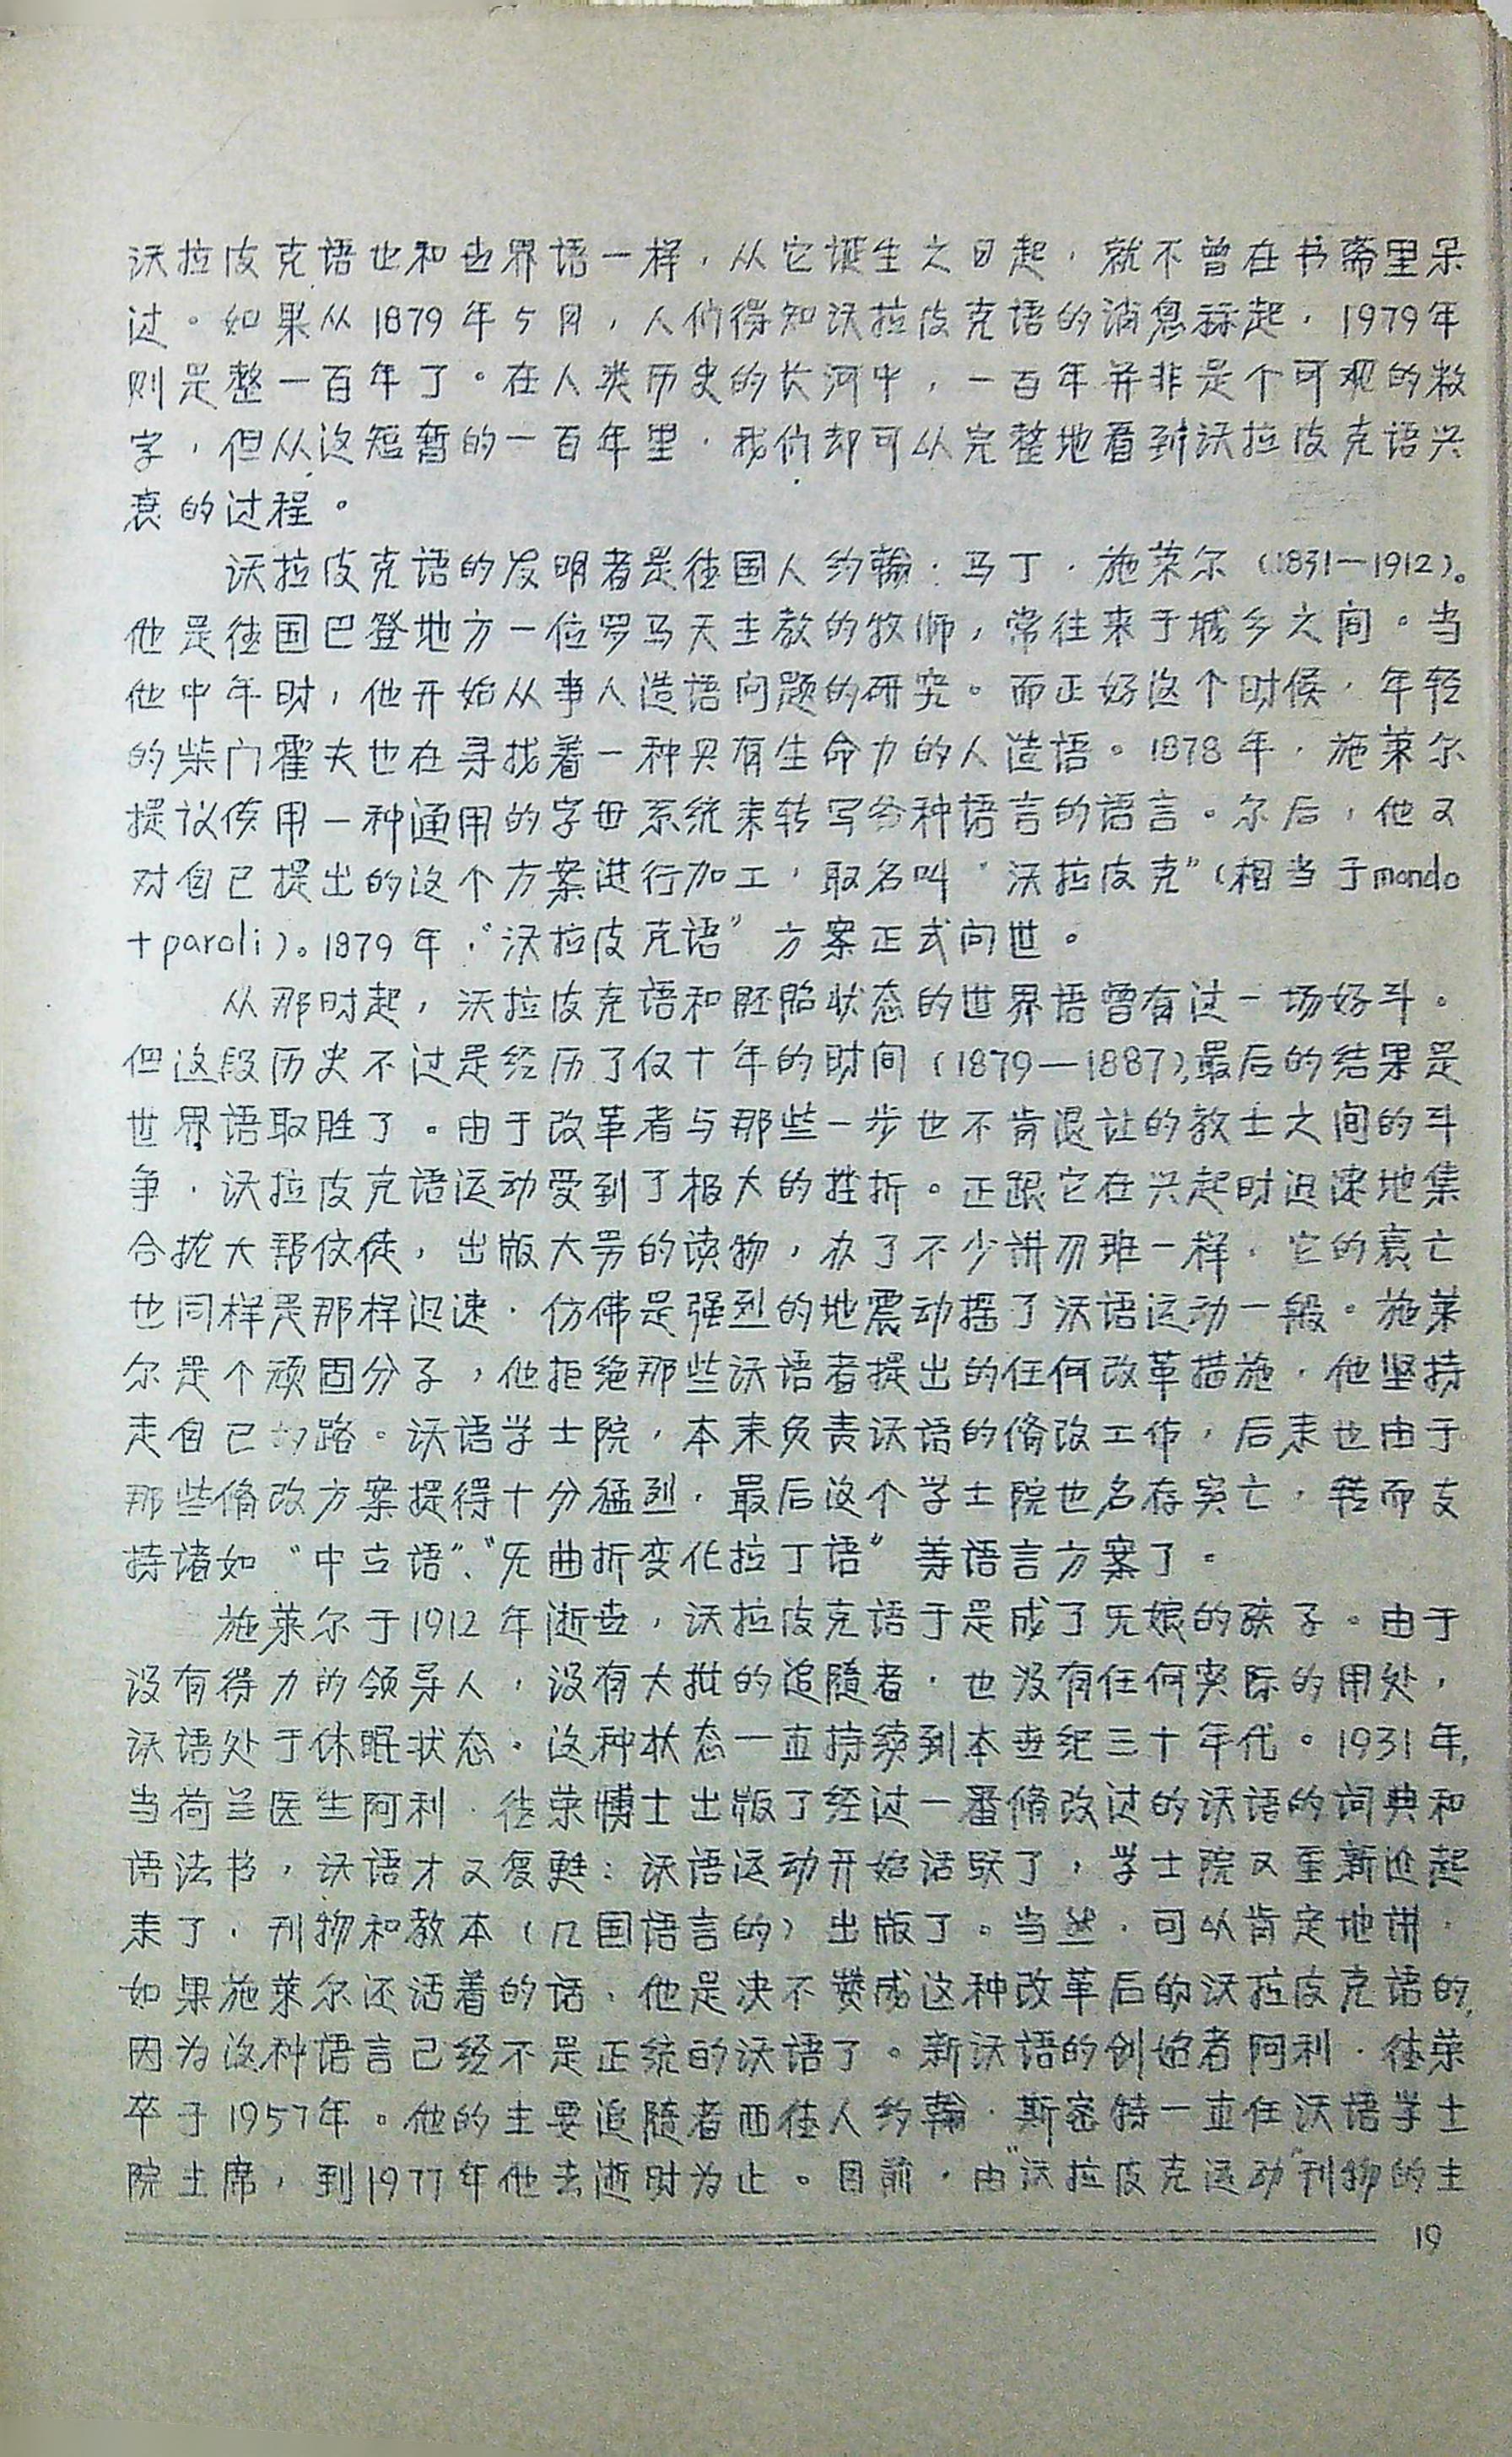 沃拉皮克语也和世界语一样，从它诞生之日起，就不曾在书斋里呆
过。如果从1879年5月，人们得知沃拉皮克语的消息标起，1979年
则是整一百年了。在人类历史的长河中，一百年并非是个可观的数
字，但从这短暂的一百年里，我们却可以完整地看到沃拉皮克语兴
衰的过程。
沃拉皮克语的发明者是德国人约翰·马丁·施莱尔（1831—1912）。
他是德国巴登地方一位罗马天主教的牧师，常往来于城乡之间。当
他中年时，他开始从事人造语问题的研究。而正好这个时候，年轻
的柴门霍夫也在寻找着一种具有生命力的人造语。1878年，施莱尔
提议使用一种通用的字母系统来转写各种语言的语言。尔后，他又
对自己提出的这个方案进行加工，取名叫“沃拉皮克”（相当于mondo
+paroli）。1879年，“沃拉皮克语”方案正式问世。
从那时起，沃拉皮克语和胚胎状态的世界语曾有过一场好斗。
但这段历史不过是经历了仅十年的时间（1879—1887），最后的结果是
世界语取胜了。由于改革者与那些一步也不肯退让的教士之间的斗
争，沃拉皮克语运动受到了极大的挫折。正跟它在兴起时迅速地集
合拢大帮伩徒，出版大另的读物，办了不少讲习班一样，它的衰亡
也同样是那样迅速，仿佛是强烈的地震动摇了沃语运动一般。施莱
尔是个顽固分子，他拒绝那些沃语者提出的任何改革措施，他坚持
走自己的路。沃语学士院，本来负责沃语的修改工作，后来也由于
那些修改方案提得十分猛烈，最后这个学士院也名存实亡，转而支
持诸如“中立语”、“无曲折变化拉丁语”等语言方案了。
施莱尔于1912年逝世，沃拉皮克语于是成了无娘的孩子。由于
没有得力的领导人，没有大批的追随者，也没有任何实际的用处，
沃语处于休眠状态。这种状态一直持续到本世纪三十年代。1931年，
当荷兰医生阿利·德荣博士出版了经过一番修改过的沃语的词典和
语法书，沃语才又复甦：沃语运动开始活跃了，学士院又重新建起
来了，刊物和教本（几国语言的）出版了。当然，可以肯定地讲，
如果施莱尔还活着的话，他是决不赞成这种改革后的沃拉皮克语的，
因为这种语言已经不是正统的沃语了。新沃语的创始者阿利·德荣
卒于1957年。他的主要追随者西德人约翰·斯密特一直任沃语学士
院主席，到1977年他去逝时为止。目前，由“沃拉皮克运动”刊物的主
19